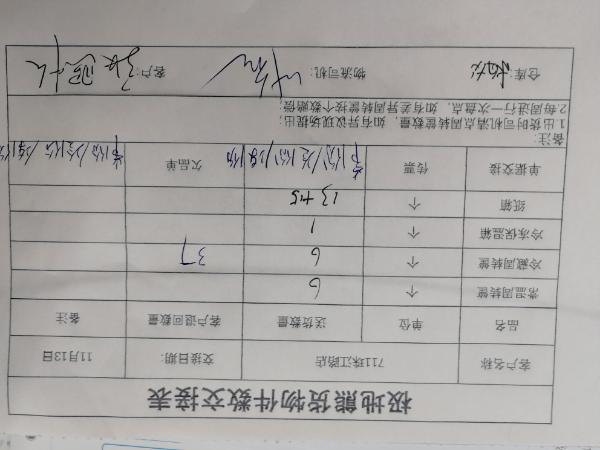 极地熊货物件数交接表
客户名称 711珠江路店 交接日期: 11月13日
品名 单位 送货数量 客户退回数量 备注
常温周转筐 个 6
冷藏周转筐 个 6 37
冷冻保温箱 个 1
纸箱 个 13+5
单据交接 传票 欠品单
备注:
1.出货时司机清点周转筐数量，如有异议现场提出;
2.每周进行一次盘点，如有差异周转筐按个数赔偿;
仓库: 物流司机: 客户: